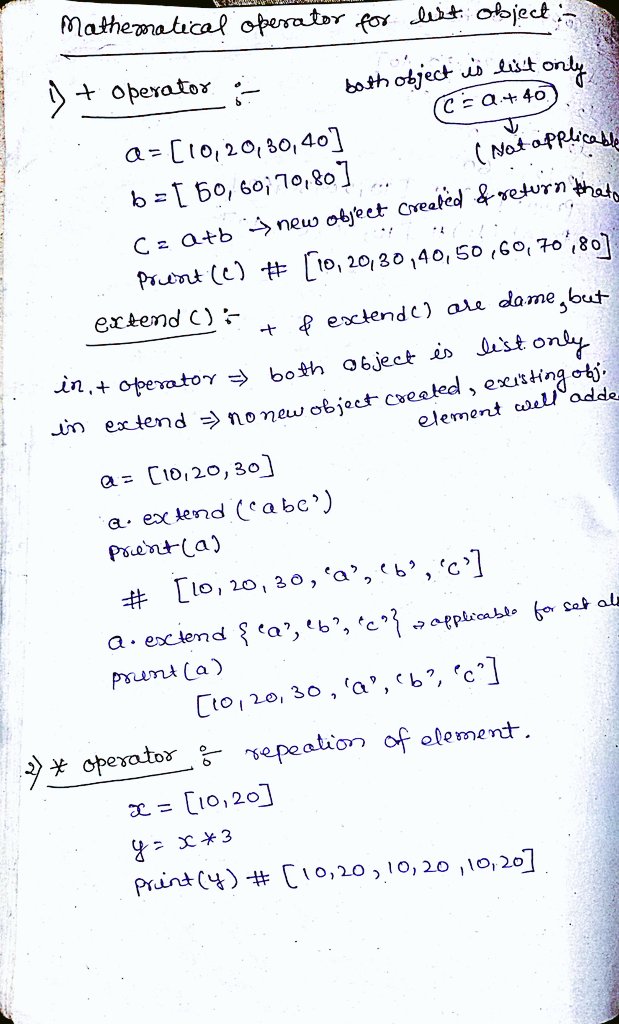 Mathematical operator for list object :-
1) + operator :-
both object is list only
c = a + 40
(Not applicable
a = [10, 20, 30, 40]
b = [50, 60, 70, 80]
c = a+b → new object created & return that o
Print (c) # [10, 20, 30, 40, 50, 60, 70, 80]
extend () :- + & extend() are same, but
in, + operator ⇒ both object is list only
in extend ⇒ no new object created, existing obj.
element well adde
a = [10, 20, 30]
a. extend ('abc')
print(a)
# [10, 20, 30, 'a', 'b', 'c']
a. extend {'a', 'b', 'c'} → applicable for set al
print (a)
[10, 20, 30, 'a', 'b', 'c']
2) * operator :- repeation of element.
x = [10, 20]
y = x * 3
print(y) # [10, 20, 10, 20, 10, 20]